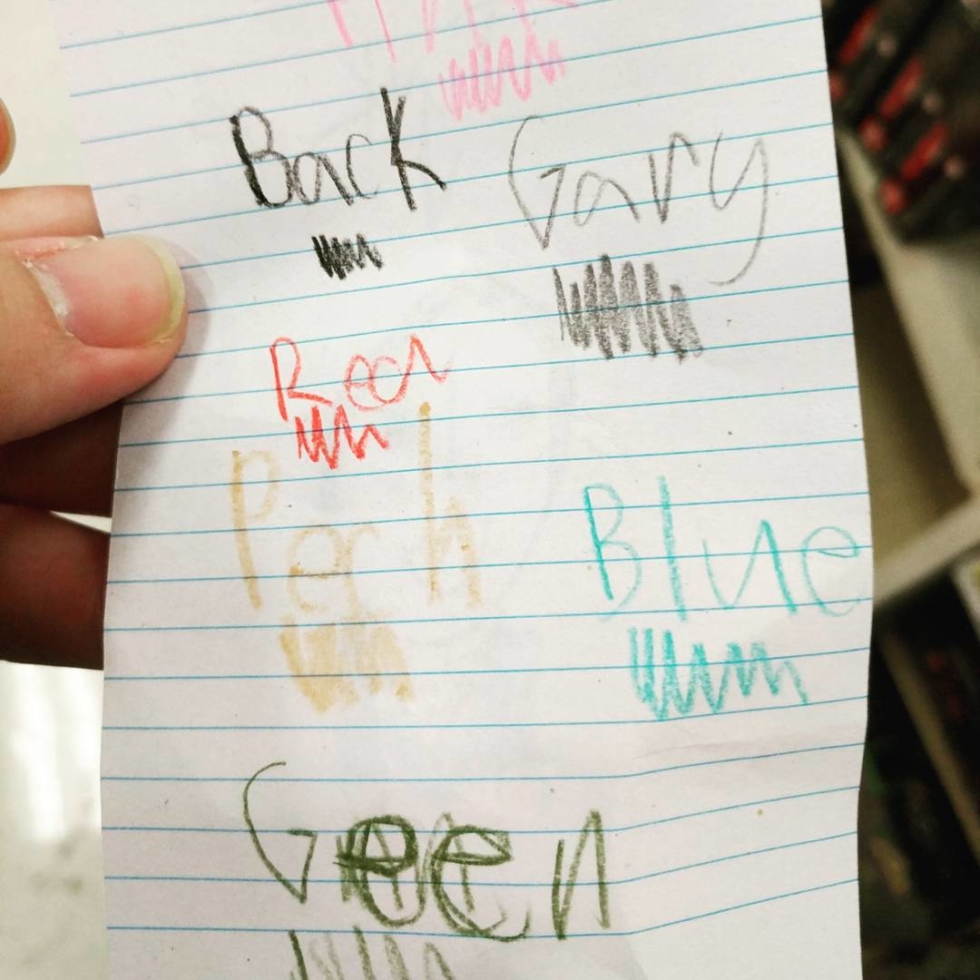 Back Gary
Red
Perh
Blue
Geen